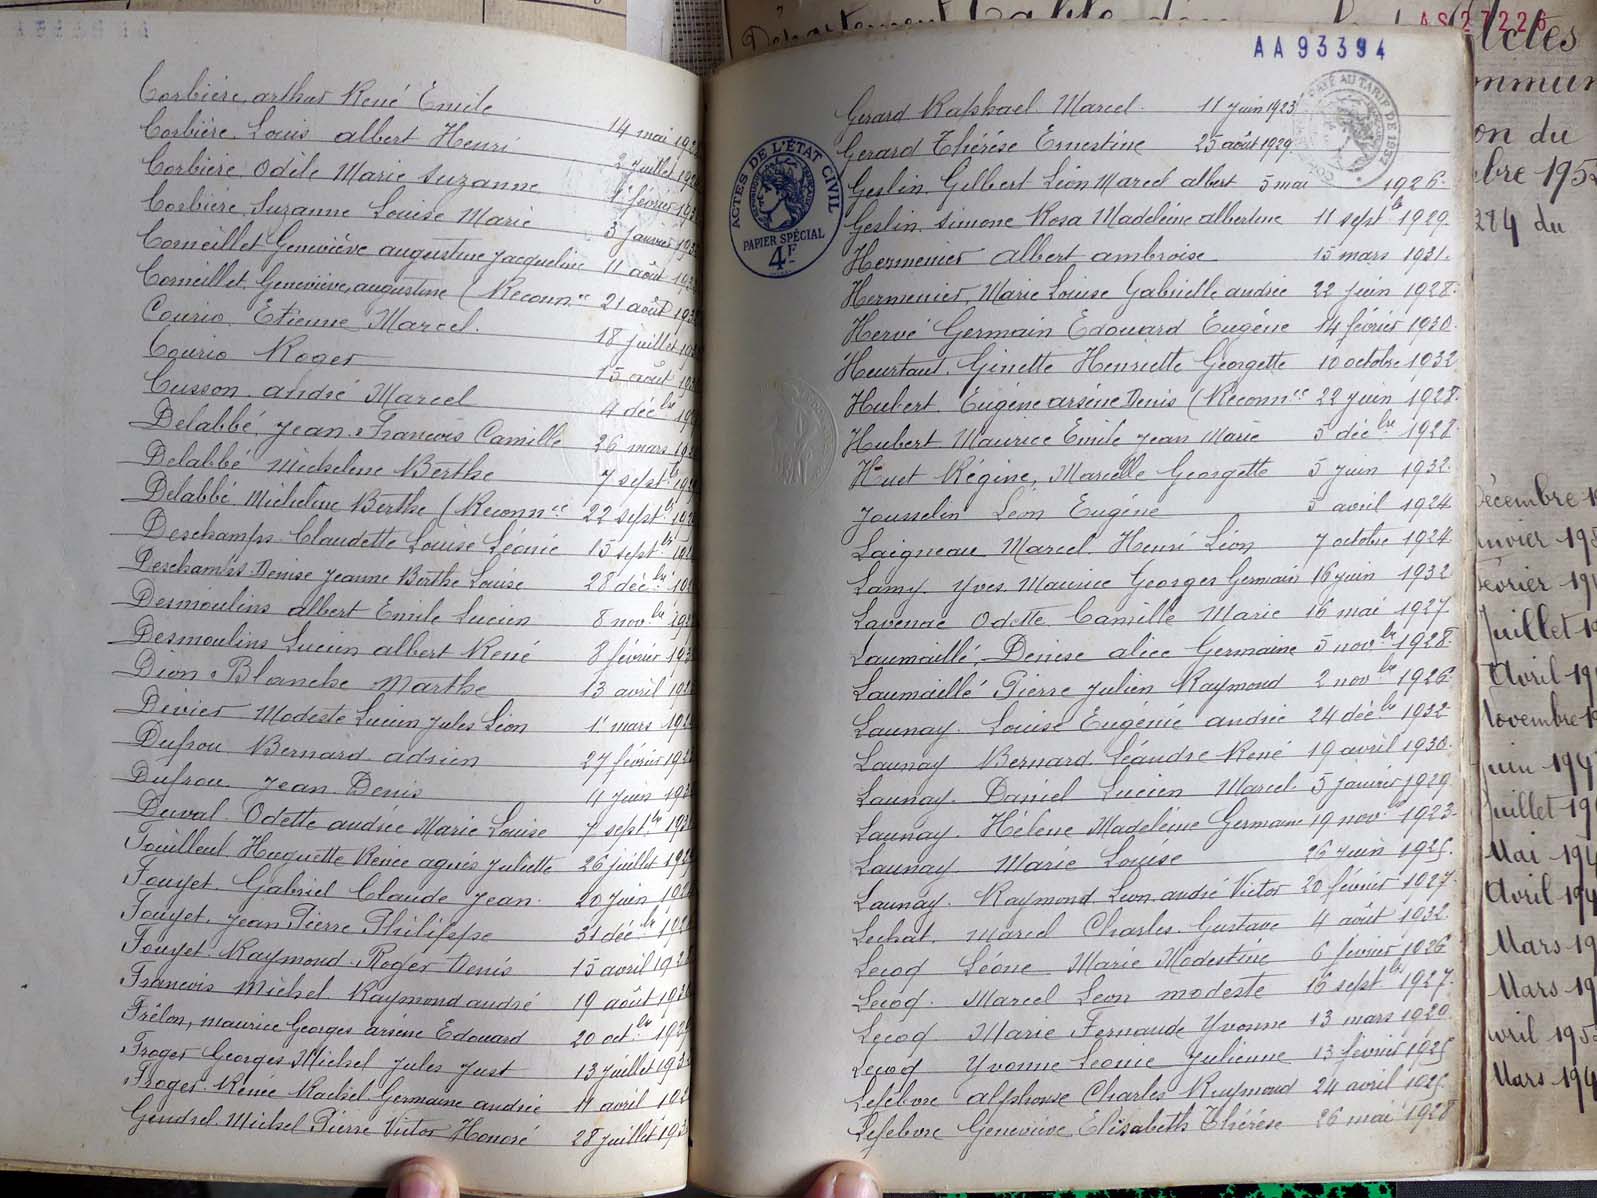 Corbière, arthur René Emile 14 mai 192
Corbière, Louis albert Henri 2 juillet 192
Corbière, Odile Marie Suzanne 1er février 193
Corbière, Suzanne Louise Marie 3 janvier 193
Corneillet Geneviève augustine jacqueline 11 août 193
Corneillet, Geneviève, augustine (Reconnce 21 août 193
Courio. Etienne Marcel. 18 juillet 19
Courio Roger 15 août 19
Cusson, andré Marcel 4 décbre 19
Delabbé, jean François Camille 26 mars 19
Delabbé Micheline Berthe 7 septbre 19
Delabbé, Micheline Berthe (Reconnce 22 septbre 19
Deschamps Claudette Louise Léonie 15 septbre 19
Deschamps Denise jeanne Berthe Louise 28 décbre 19
Desmoulins albert Emile Lucien 8 novbre 192
Desmoulins Lucien albert René 8 février 193
Dion Blanche Marthe 13 avril 192
Divier Modeste Lucien jules Léon 1er mars 192
Dufrou Bernard adrien 27 février 192
Dufrou jean Denis 11 juin 193
Duval Odette andrée Marie Louise 7 septbre 193
Fouilleul Huguette Renée agnès juliette 26 juillet 192
Fouyet Gabriel Claude jean 20 juin 192
Fouyet jean Pierre Philippe 31 décbre 192
Fouyet Raymond Roger Denis 15 avril 192
François Michel Raymond andré 19 août 193
Frêlon, maurice Georges arsène Edouard 20 octbre 192
Froger Georges Michel jules just 13 juillet 193
Froger Renée Rachel Germaine andrée 11 avril 192
Gendrel Michel Pierre Victor Honoré 28 juillet 193
AA 93394
Gerard Raphael Marcel 11 juin 1923
Gerard Thérèse Ernestine 25 août 1929
Geslin, Gilbert Léon Marcel albert 5 mai 1926
Geslin, Simone Rosa Madeleine albertine 11 septbre 1929
Hermenier albert ambroise 15 mars 1931.
Hermenier, Marie Louise Gabrielle andrée 22 juin 1928.
Hervé Germain Edouard Eugène 14 février 1930.
Heurtaut, Ginette Henriette Georgette 10 octobre 1932
Hubert. Eugène arsène Denis (Reconnce 22 juin 1928.
Hubert Maurice Emile jean Marie 5 décbre 1928
Huet Régine, Marcelle Georgette 5 juin 1932.
jousselin Léon Eugène 5 avril 1924
Laigneau Marcel Henri Léon 7 octobre 1924
Lamy Yves Maurice Georges Germain 16 juin 1932
Lavenac Odette Camille Marie 16 mai 1927
Laumaillé Denise alice Germaine 5 novbre 1928.
Laumaillé Pierre julien Raymond 2 novbre 1926
Launay Louise Eugénie andrée 24 décbre 1932
Launay Bernard Léandre René 19 avril 1930.
Launay Daniel Lucien Marcel 5 janvier 1929
Launay Hélène Madeleine Germaine 19 novbre 1923
Launay Marie Louise 26 juin 1925.
Launay Raymond Léon andré Victor 20 février 1927.
Lechat, marcel Charles Gustave 4 août 1932
Lecoq Léone Marie Modestine 6 février 1926
Lecoq Marcel Leon modeste 16 septbre 1927.
Lecoq Marie Fernande Yvonne 13 mars 1929
Lecoq Yvonne Leonie julienne 13 février 1925
Lefebvre alphonse Charles Raymond 24 avril 1925.
Lefebvre Geneviève Elisabeth Thérèse 26 mai 1928
ACTES DE L'ÉTAT CIVIL
PAPIER SPÉCIAL
4F
Département
Actes
AS 27226
on du
284 du
Décembre
Janvier
Février
Juillet
Avril
Novembre
Juin
Juillet
Mai
Avril
Mars
Mars
Avril
Mars